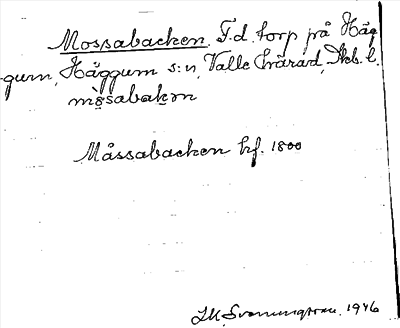 Mossabacken, F.d. torp på Häg
gum, Häggum s:n, Valle härad, Skb. l.
mòsabakən
Måssabacken hf. 1800
1946